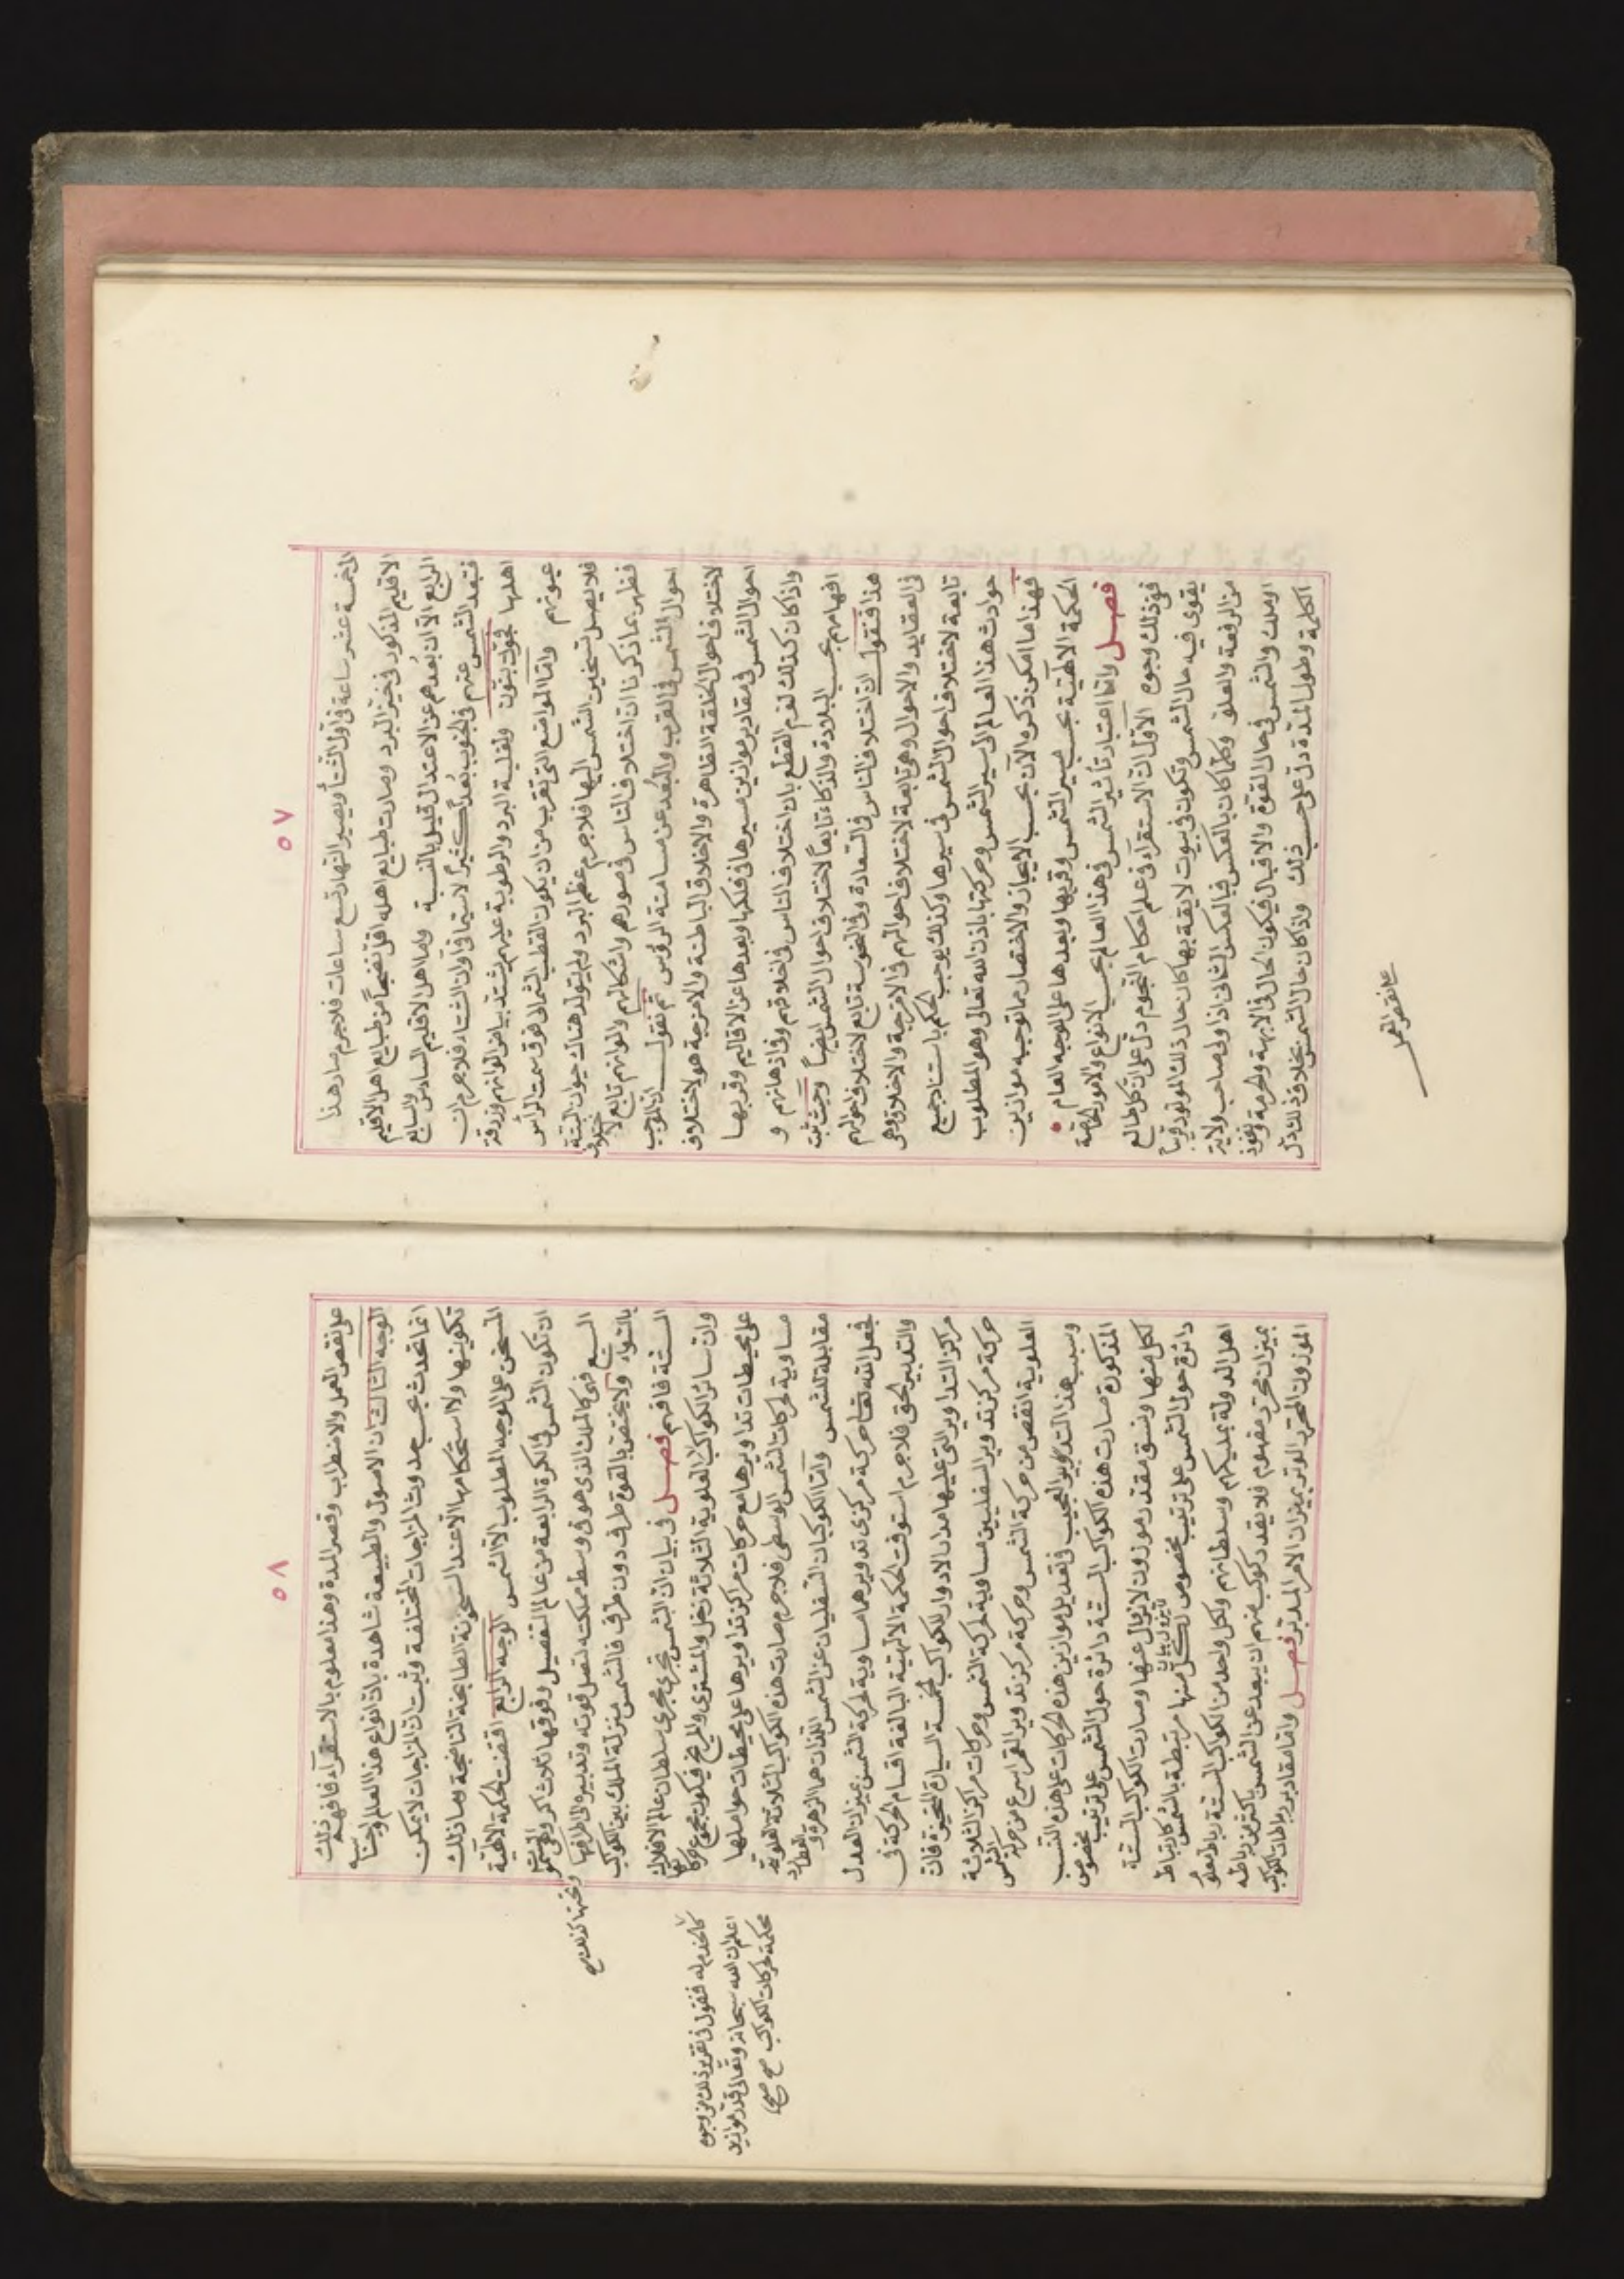 ٥٧
الخمسة عشر ساعة في اول الشتا ويصير النهار تسع ساعات فلاجرم صار هذا
الاقليم المذكور في حيز البرد وصارت طبايع اهله اقل نضجاً من طبايع اهل الاقليم
الرابع الا ان بُعدهم عن الاعتدال قليل بالنسبة واما اهل الاقليم السادس والسابع
فتبعد الشمس عنهم في الجنوب بُعداً كثيراً لاسيما في اوان الشتاء فلاجرم ان
اهلها وتغلبة البرد والرطوبة عليهم يشتد بياض الوانهم وزرقة
عيونهم واما المواضع التي تقرب من ان يكون القطب الشمالي فوق سمت الرأس
فلا يصل تسخين الشمس اليها فلاجرم عظم البرد ولم يتولد هناك حيوان البتة
فظهر بما ذكرنا ان اختلاف الناس في صورهم واشكالهم والوانهم تابع لاختلاف
احوال الشمس في القرب والبُعد عن مسامتة الرؤس ثم نقول ان الموجب
لاختلاف احوال الخلقة الظاهرة والاخلاق الباطنة والامزجة هو لاختلاف
احوال الشمس في مقادير موازين مسيرها في فلكها وبعدها عن الاقاليم وقربها
واذا كان كذلك لزم القطع بان اختلاف الناس في اخلاقهم وفي اذهانهم و
افهامهم بحسب البلادة والذكاء تابعاً لاختلاف احوال الشمس ايضاً وحيث ثبت
هذا فنقول ان اختلاف الناس في السعادة وفي النحوسة تابع لاختلاف احوالهم
في العقايد والاحوال وهي تابعة لاختلاف احوالهم في الامزجة والاخلاق وهي
تابعة لاختلاف احوال الشمس في سيرها وكذلك يوجب الحكم باستناد جميع
حوادث هذا العالم الى سير الشمس وحركتها باذن الله تعالى وهو المطلوب
فهذا ما امكن ذكره الآن بحسب الايجاز والاختصار مما توجبه موازين
الحكمة الالهية بحسب مسير الشمس وقربها وبعدها على الوجه العام
فصل واما اعتبار تأثير الشمس في هذا العالم بحسب الانواع والامور الخاصة
ففي ذلك وجوه الاول ان الاستقراء في علم احكام النجوم دل على ان كل طالع
يقوى فيه حال الشمس وتكون في بيوت لايقة بها كان حال ذلك المولود قريباً
من الرفعة والعلو وكلما كان بالعكس فبالعكس الثاني اذا ولي صاحب ولاية
او ملك والشمس في حال القوة والاقبال فيكون الحال في الابهة والحرمة ونفوذ
الكلمة وطول المدة دل على حسب ذلك واذا كان حال الشمس بخلاف ذلك دل
على نقص العمل
٥٨
على نقص العمل والاضطراب وقصر المدة وهذا معلوم بالاستقراء فافهم ذلك
الوجه الثالث ان الاصول والطبيعة شاهدة بان انواع هذا العالم واجناسه
انما تحدث بحسب حدوث المزاجات المختلفة وثبت ان المزاجات لا يمكن
تكوينها ولا استحكامها الا عند السخونة الطابخة الناضجة وما ذلك
المسخن على الوجه المطلوب الا الشمس الوجه الرابع اقتضت الحكمة الالهية
ان تكون الشمس في الكرة الرابعة من عالم التفصيل وفوقها ثلاث اكر
السبع فهي كالملك الذي هو في وسط مملكته لتصل قوته وتدبيره الى اطرافها
بالسواء ولا يختص بالقوة طرف دون طرف فالشمس منزلة الملك بين الكواكب
الستة فافهم فصل في بيان ان الشمس تجري مجرى سلطان عالم الافلاك
وان سائر الكواكب العلوية الثلاثة زحل والمشتري والمريخ فيكون مجموع حركاتها
على محيطات تداويرها مع حركات مراكز تداويرها على محيطات حواملها
مساوية لحركات الشمس الوسطى فلاجرم صارت هذه الكواكب الثلاثة العلوية
مقابلة للشمس واما الكوكبان السفليان عن الشمس اللذان هما الزهرة وعطارد
فجعل الله تعالى حركة مركزي تدويرهما مساوية لحركة الشمس بميزان العدل
والتدبير الحق فلاجرم استوفت الحكمة الالهية البالغة اقسام الحركة في
مراكز التداوير التي عليها مدار الادوار للكواكب الخمسة السيارة المتحيزة فان
حركة مركز تدوير السفليين مساوية لحركة الشمس وحركات مراكز الثلاثة
العلوية انقص من حركة الشمس وحركة مركز تدوير القمر اسرع من حركة الشمس
وسبب هذا التدبير العجيب في تعديل موازين هذه الحركات على هذه النسب
المذكورة صارت هذه الكواكب الستة دائرة حول الشمس على ترتيب مخصوص
لكل منها ونسق مقدر موزون لا تزال عنها وصارت الكواكب الستة
دائرة حول الشمس على ترتيب مخصوص لكل منها مرتبطة بالشمس كارتباط
اهل الدولة بمليكهم وسلطانهم ولكل واحد من الكواكب الستة رباط معلوم
بميزان محرر مفهوم فلا يقدر كوكب منهم ان يبعد عن الشمس باكثر من رباطه
الموزون المحرر الموتر بميزان الامر المدبر فصل واما مقادير رباطات الكواكب
وتحتها كذلك صح
كالخدم له فنقول في تقرير ذلك من وجوه
اعلم ان الله سبحانه وتعالى قدر موازين
محكمة لحركات الكواكب صح صح